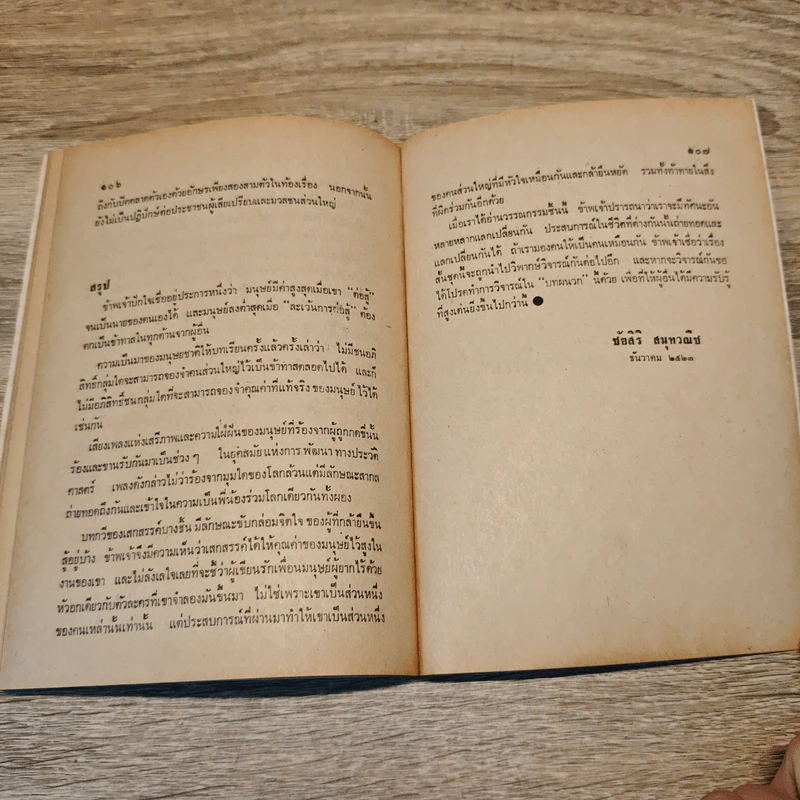 ๑๐๖
ถึงกับมีตลาดตัวเองด้วยอักษรเพียงสองสามตัวในท้องเรื่อง นอกจากนั้น
ยังไม่เป็นปฏิปักษ์ต่อประชาชนผู้เสียเปรียบและมวลชนส่วนใหญ่
สรุป
ข้าพเจ้าปักใจเชื่ออยู่ประการหนึ่งว่า มนุษย์มีค่าสูงสุดเมื่อเขา “ต่อสู้”
จนเป็นนายของตนเองได้ และมนุษย์ลงต่ำสุดเมื่อ “ละเว้นการต่อสู้” ต้อง
ตกเป็นข้าทาสในทุกด้านจากผู้อื่น
ความเป็นมาของมนุษยชาติให้บทเรียนครั้งแล้วครั้งเล่าว่า ไม่มีชนอภิ
สิทธิ์กลุ่มใดจะสามารถจองจำคนส่วนใหญ่ไว้เป็นข้าทาสตลอดไปได้ และก็
ไม่มีอภิสิทธิ์ชนกลุ่มใดที่จะสามารถจองจำคุณค่าที่แท้จริง ของมนุษย์ ไว้ได้
เช่นกัน
เสียงเพลงแห่งเสรีภาพและความใฝ่ฝันของมนุษย์ที่ร้องจากผู้ถูกกดขี่นั้น
ร้องและขานรับกันมาเป็นช่วง ๆ ในยุคสมัย แห่งการ พัฒนา ทางประวัติ
ศาสตร์ เพลงดังกล่าวไม่ว่าร้องจากมุมใดของโลกล้วนแต่มีลักษณะสากล
ถ่ายทอดถึงกันและเข้าใจในความเป็นพี่น้องร่วมโลกเดียวกันทั้งผอง
บทกวีของเสกสรรค์บางชิ้น มีลักษณะขับกล่อมจิตใจ ของผู้ที่กล้ายืนขึ้น
สู้อยู่บ้าง ข้าพเจ้าจึงมีความเห็นว่าเสกสรรค์ได้ให้คุณค่าของมนุษย์ไว้สูงใน
งานของเขา และไม่ลังเลใจเลยที่จะชี้ว่าผู้เขียนรักเพื่อนมนุษย์ผู้ยากไร้ด้วย
หัวอกเดียวกับตัวละครที่เขาจำลองมันขึ้นมา ไม่ใช่เพราะเขาเป็นส่วนหนึ่ง
ของคนเหล่านั้นเท่านั้น แต่ประสบการณ์ที่ผ่านมาทำให้เขาเป็นส่วนหนึ่ง
๑๐๗
ของคนส่วนใหญ่ที่มีหัวใจเหมือนกันและกล้ายืนหยัด รวมทั้งท้าทายในสิ่ง
ที่ผิดร่วมกันอีกด้วย
เมื่อเราได้อ่านวรรณกรรมชิ้นนี้ ข้าพเจ้าปรารถนาว่าเราจะมีทัศนะอัน
หลายหลากแลกเปลี่ยนกัน ประสบการณ์ในชีวิตที่ต่างกันนั้นถ่ายทอดและ
แลกเปลี่ยนกันได้ ถ้าเรามองคนให้เป็นคนเหมือนกัน ข้าพเจ้าเชื่อว่าเรื่อง
สั้นชุดนี้จะถูกนำไปวิพากษ์วิจารณ์กันต่อไปอีก และหากจะวิจารณ์กันขอ
ได้โปรดทำการวิจารณ์ใน “บทผนวก” นี้ด้วย เพื่อที่ให้ผู้อื่นได้มีความรับรู้
ที่สูงเด่นยิ่งขึ้นไปกว่านี้ ●
ชัยสิริ สมุทวณิช
ธันวาคม ๒๕๒๓